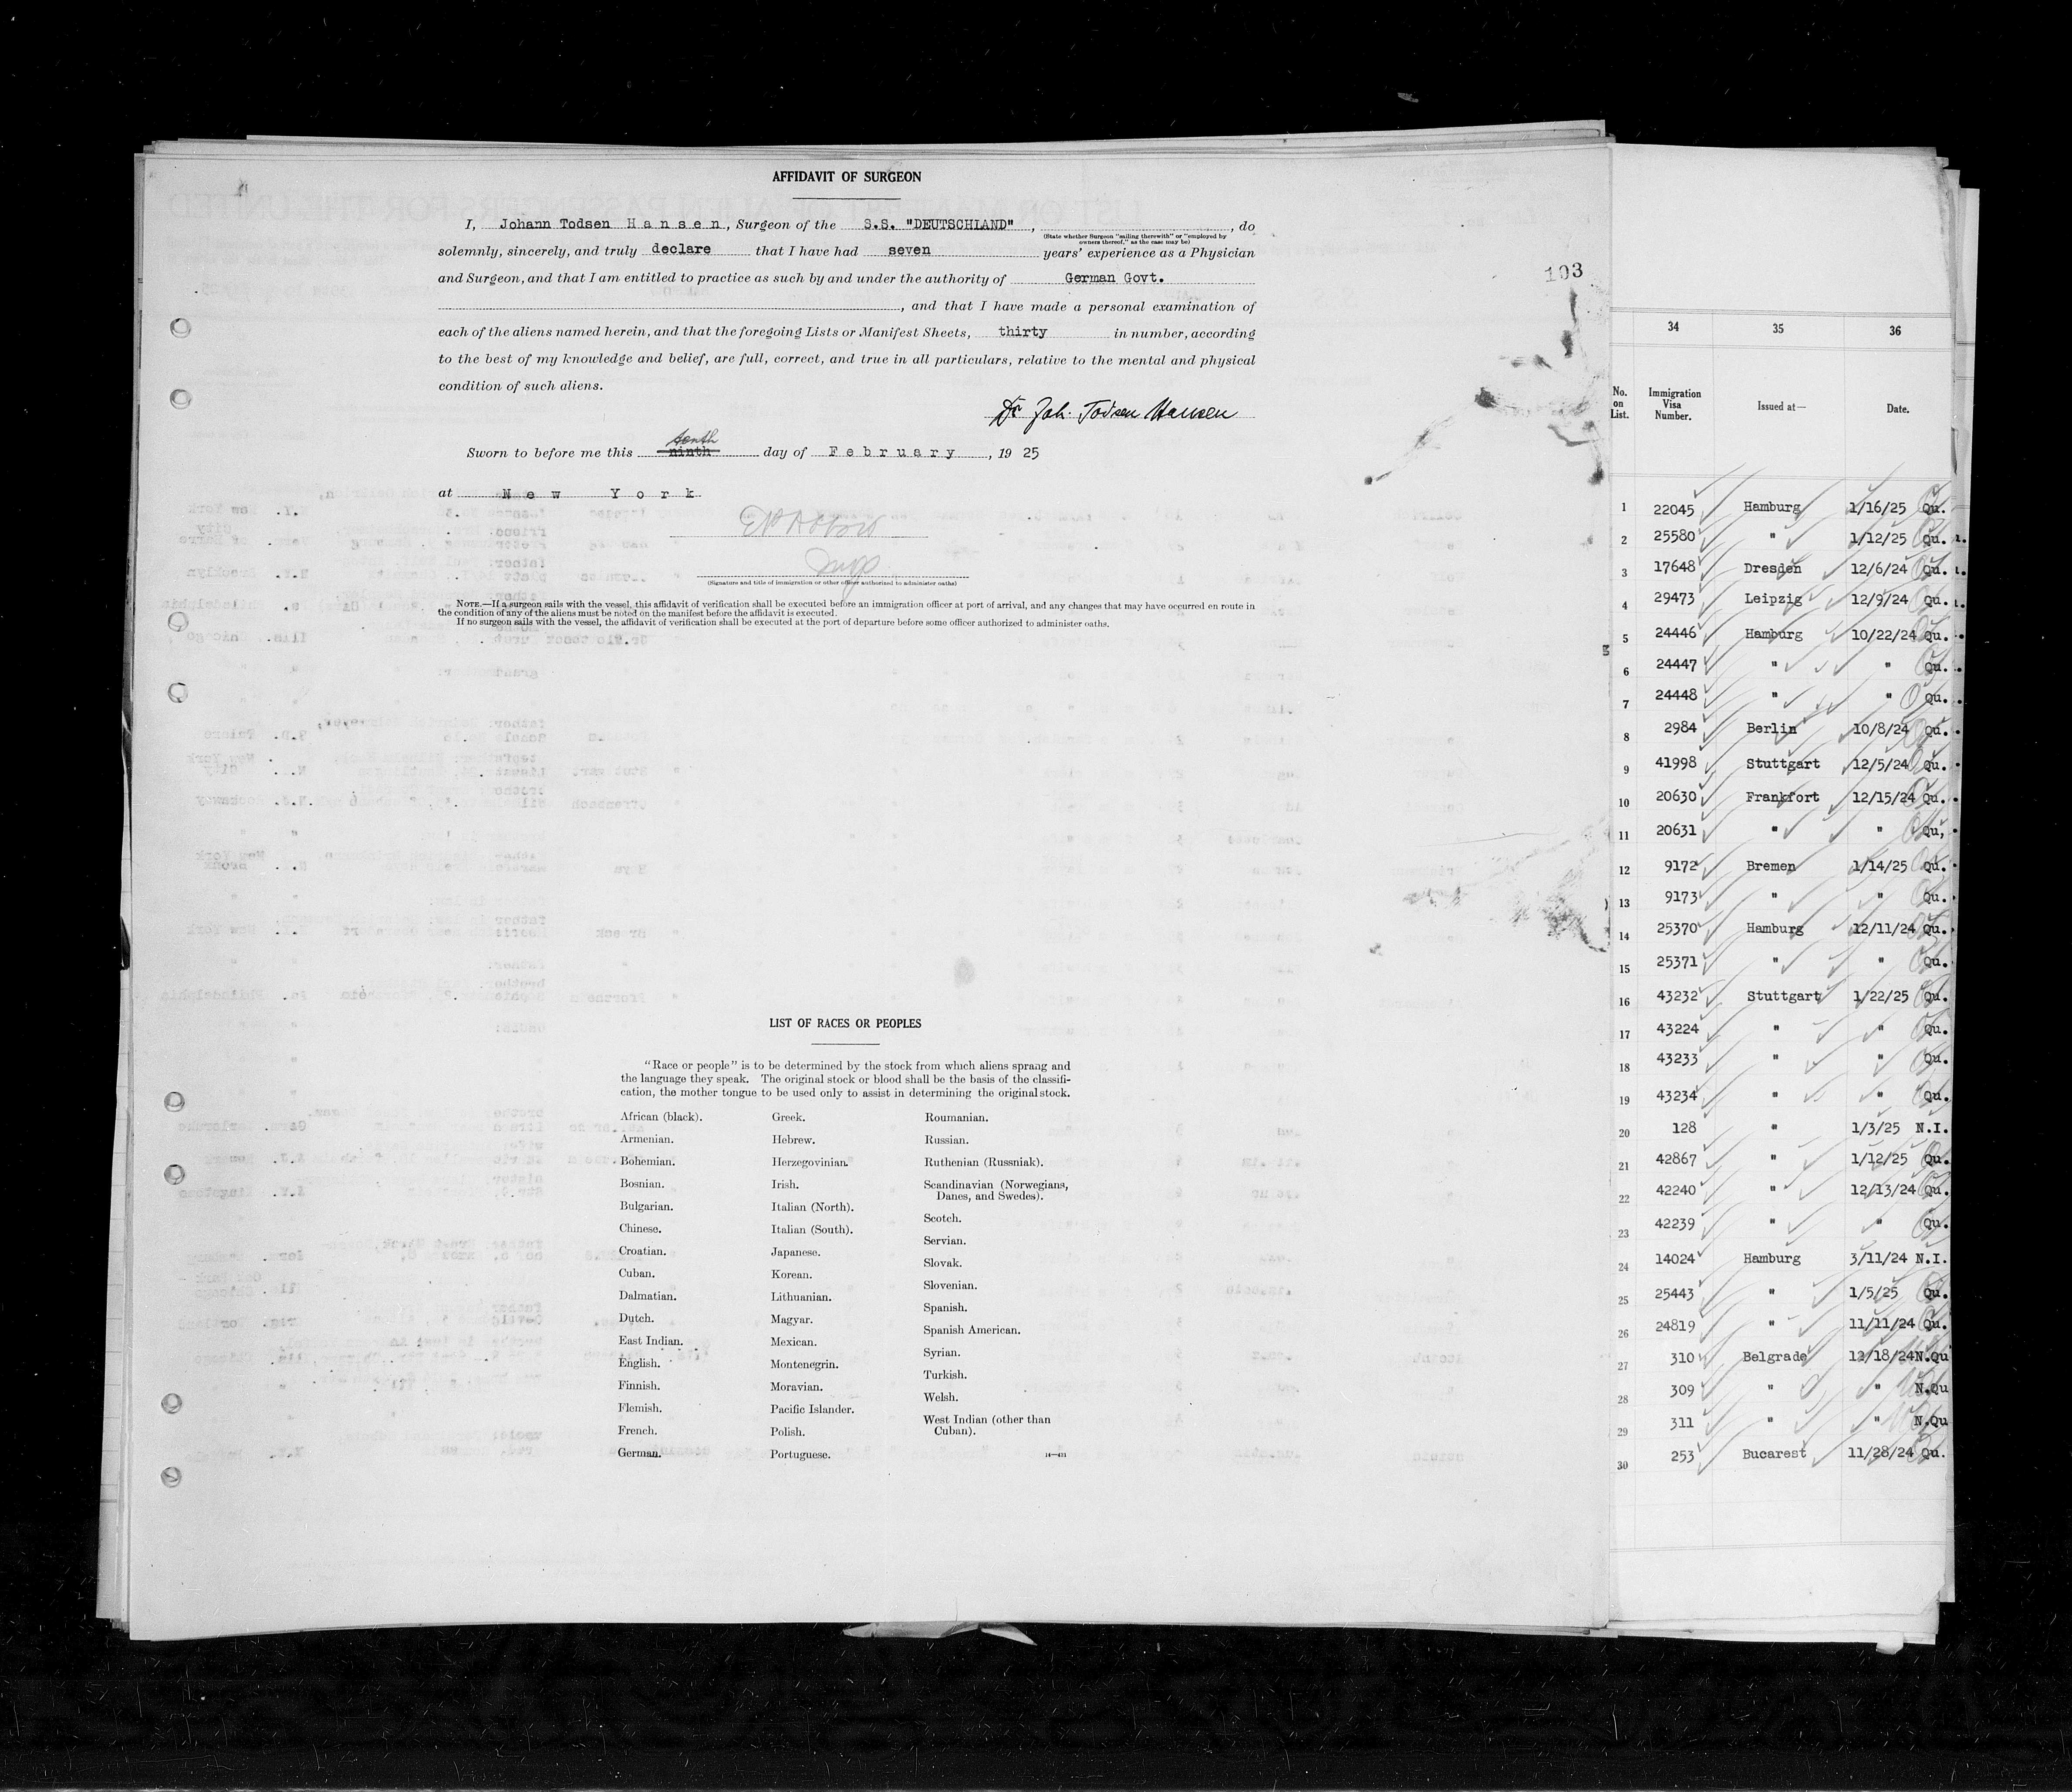 AFFIDAVIT OF SURGEON
I, Johann Todsen Hansen, Surgeon of the S.S. "DEUTSCHLAND", , do
(State whether Surgeon "sailing therewith" or "employed by
owners thereof," as the case may be)
solemnly, sincerely, and truly declare that I have had seven years' experience as a Physician
and Surgeon, and that I am entitled to practice as such by and under the authority of German Govt.
, and that I have made a personal examination of
each of the aliens named herein, and that the foregoing Lists or Manifest Sheets, thirty in number, according
to the best of my knowledge and belief, are full, correct, and true in all particulars, relative to the mental and physical
condition of such aliens.
Dr Joh. Todsen Hansen
tenth
Sworn to before me this ninth day of February, 19 25
at New York
(Signature and title of immigration or other officer authorized to administer oaths)
NOTE.—If a surgeon sails with the vessel, this affidavit of verification shall be executed before an immigration officer at port of arrival, and any changes that may have occurred en route in
the condition of any of the aliens must be noted on the manifest before the affidavit is executed.
If no surgeon sails with the vessel, the affidavit of verification shall be executed at the port of departure before some officer authorized to administer oaths.
103
LIST OF RACES OR PEOPLES
"Race or people" is to be determined by the stock from which aliens sprang and
the language they speak. The original stock or blood shall be the basis of the classifi-
cation, the mother tongue to be used only to assist in determining the original stock.
African (black).
Armenian.
Bohemian.
Bosnian.
Bulgarian.
Chinese.
Croatian.
Cuban.
Dalmatian.
Dutch.
East Indian.
English.
Finnish.
Flemish.
French.
German.
Greek.
Hebrew.
Herzegovinian.
Irish.
Italian (North).
Italian (South).
Japanese.
Korean.
Lithuanian.
Magyar.
Mexican.
Montenegrin.
Moravian.
Pacific Islander.
Polish.
Portuguese.
Roumanian.
Russian.
Ruthenian (Russniak).
Scandinavian (Norwegians,
Danes, and Swedes).
Scotch.
Servian.
Slovak.
Slovenian.
Spanish.
Spanish American.
Syrian.
Turkish.
Welsh.
West Indian (other than
Cuban).
34 35 36
No. on List. Immigration Visa Number. Issued at— Date.
1 22045 Hamburg 1/16/25 Qu.
2 25580 " 1/12/25 Qu.
3 17648 Dresden 12/6/24 Qu.
4 29473 Leipzig 12/9/24 Qu.
5 24446 Hamburg 10/22/24 Qu.
6 24447 " " Qu.
7 24448 " " Qu.
8 2984 Berlin 10/8/24 Qu.
9 41998 Stuttgart 12/5/24 Qu.
10 20630 Frankfort 12/15/24 Qu.
11 20631 " " Qu,
12 9172 Bremen 1/14/25 Qu.
13 9173 " " Qu.
14 25370 Hamburg 12/11/24 Qu.
15 25371 " " Qu.
16 43232 Stuttgart 1/22/25 Qu.
17 43224 " " Qu.
18 43233 " " Qu.
19 43234 " " Qu.
20 128 " 1/3/25 N.I.
21 42867 " 1/12/25 Qu.
22 42240 " 12/13/24 Qu.
23 42239 " " Qu.
24 14024 Hamburg 3/11/24 N.I.
25 25443 " 1/5/25 Qu.
26 24819 " 11/11/24 Qu.
27 310 Belgrade 12/18/24 N.Qu
28 309 " " N.Qu
29 311 " " N.Qu
30 253 Bucarest 11/28/24 Qu.